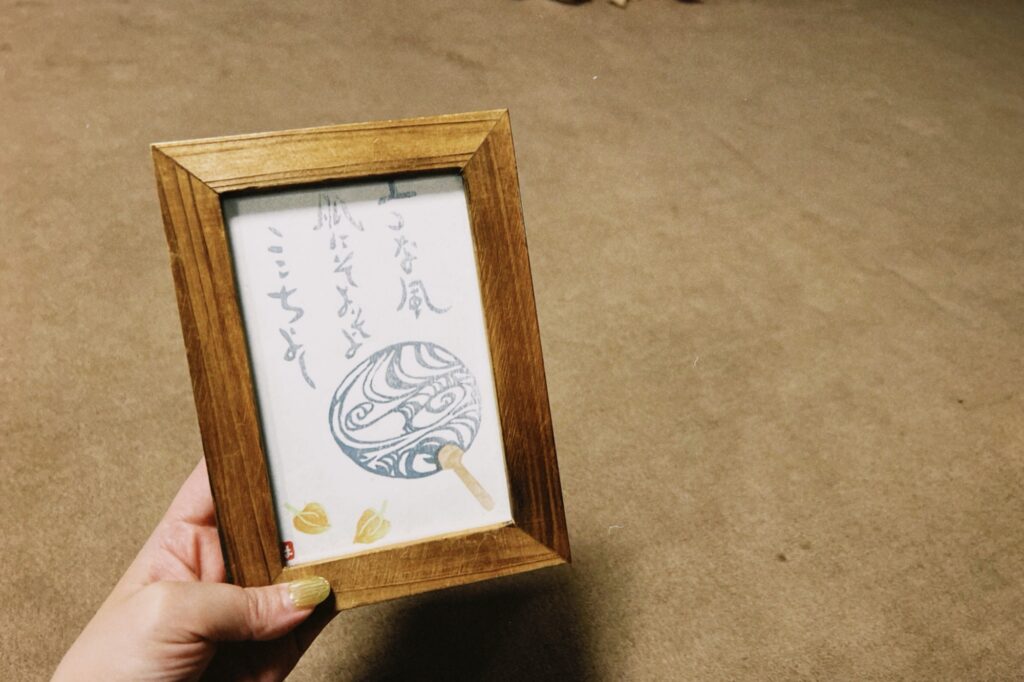 な風
肌にそよそよ
ここちよし